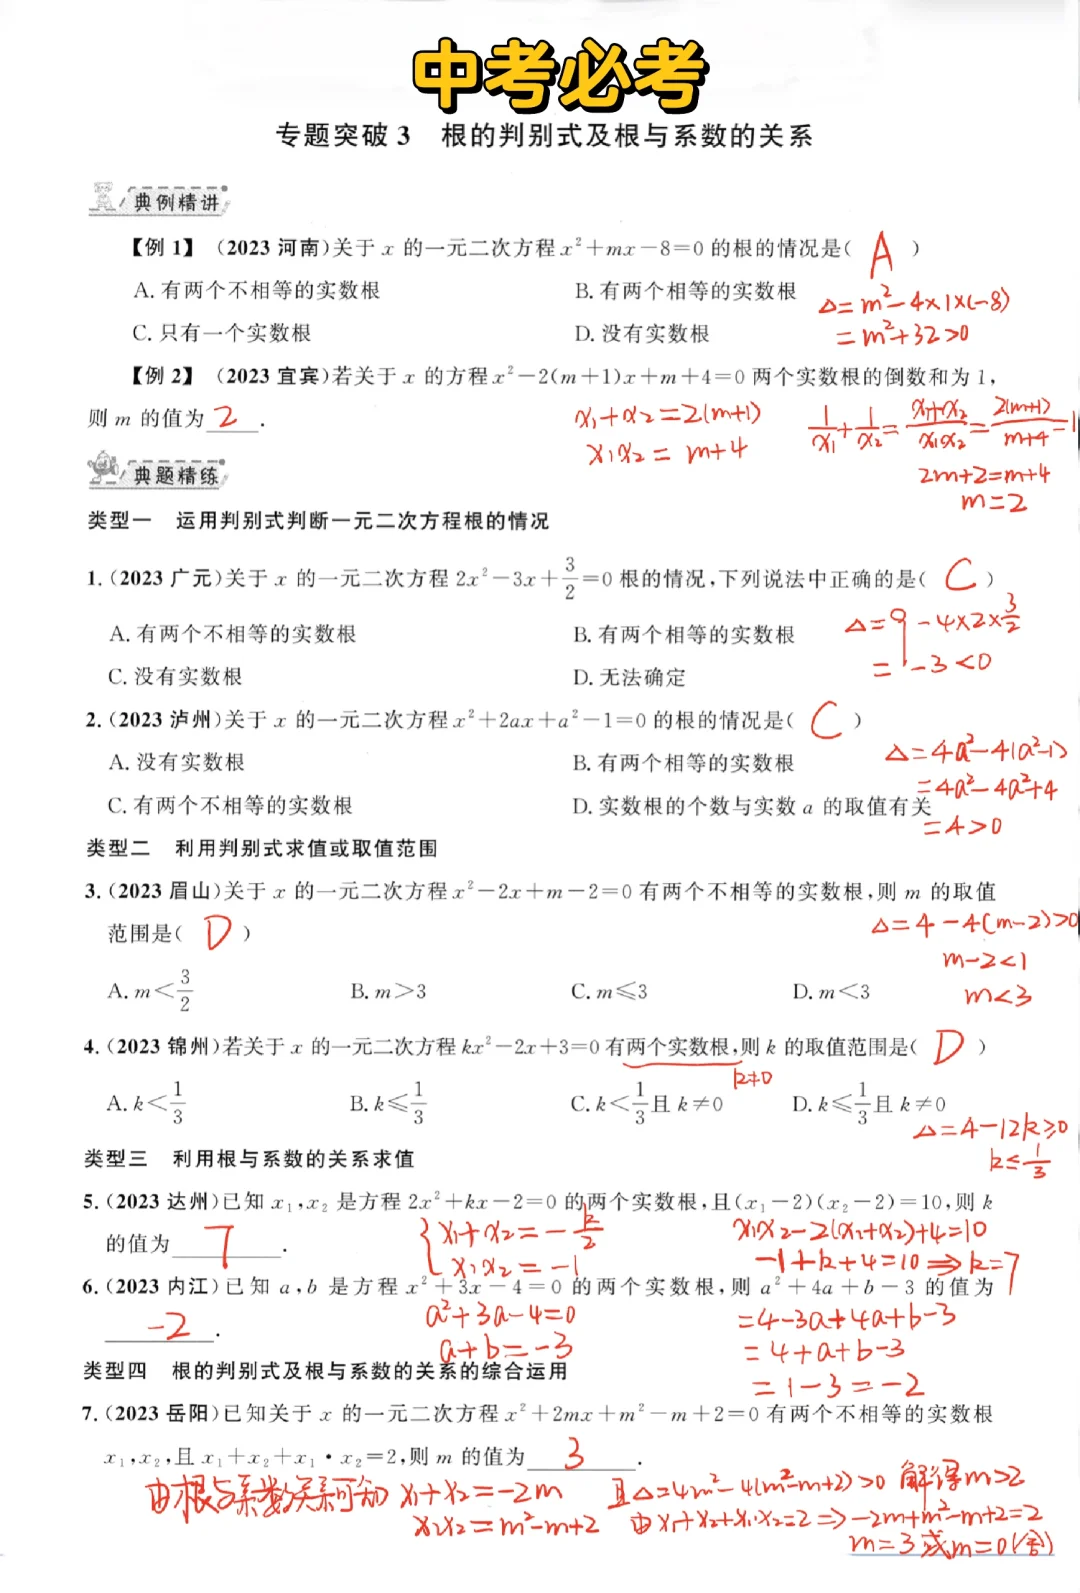 中考必考
专题突破3 根的判别式及根与系数的关系
典例精讲
【例1】（2023河南）关于x的一元二次方程x²+mx-8=0的根的情况是( A )
A.有两个不相等的实数根 B.有两个相等的实数根
△=m²-4×1×(-8)
C.只有一个实数根 D.没有实数根
=m²+32>0
【例2】（2023宜宾）若关于x的方程x²-2(m+1)x+m+4=0两个实数根的倒数和为1,
则m的值为 2 .
x₁+x₂=2(m+1)
x₁x₂=m+4
1/x₁+1/x₂=(x₁+x₂)/(x₁x₂)=2(m+1)/(m+4)=1
2m+2=m+4
m=2
典题精练
类型一 运用判别式判断一元二次方程根的情况
1.（2023广元）关于x的一元二次方程2x²-3x+3/2=0根的情况,下列说法中正确的是( C )
A.有两个不相等的实数根 B.有两个相等的实数根
△=9-4×2×3/2
C.没有实数根 D.无法确定
=-3<0
2.（2023泸州）关于x的一元二次方程x²+2ax+a²-1=0的根的情况是( C )
A.没有实数根 B.有两个相等的实数根
△=4a²-4(a²-1)
=4a²-4a²+4
C.有两个不相等的实数根 D.实数根的个数与实数a的取值有关
=4>0
类型二 利用判别式求值或取值范围
3.（2023眉山）关于x的一元二次方程x²-2x+m-2=0有两个不相等的实数根,则m的取值
范围是( D )
△=4-4(m-2)>0
m-2<1
A.m<3/2 B.m>3 C.m≤3 D.m<3
m<3
4.（2023锦州）若关于x的一元二次方程kx²-2x+3=0有两个实数根,则k的取值范围是( D )
k≠0
A.k<1/3 B.k≤1/3 C.k<1/3且k≠0 D.k≤1/3且k≠0
△=4-12k≥0
k≤1/3
类型三 利用根与系数的关系求值
5.（2023达州）已知x₁,x₂是方程2x²+kx-2=0的两个实数根,且(x₁-2)(x₂-2)=10,则k
的值为 7 .
{x₁+x₂=-k/2
x₁x₂=-1
x₁x₂-2(x₁+x₂)+4=10
-1+k+4=10⇒k=7
6.（2023内江）已知a,b是方程x²+3x-4=0的两个实数根,则a²+4a+b-3的值为
-2 .
a²+3a-4=0
a+b=-3
=4-3a+4a+b-3
=4+a+b-3
=1-3=-2
类型四 根的判别式及根与系数的关系的综合运用
7.（2023岳阳）已知关于x的一元二次方程x²+2mx+m²-m+2=0有两个不相等的实数根
x₁,x₂,且x₁+x₂+x₁·x₂=2,则m的值为 3 .
由根与系数关系可知 x₁+x₂=-2m
x₁x₂=m²-m+2
且△=4m²-4(m²-m+2)>0 解得m>2
由x₁+x₂+x₁·x₂=2⇒-2m+m²-m+2=2
m=3或m=0(舍)